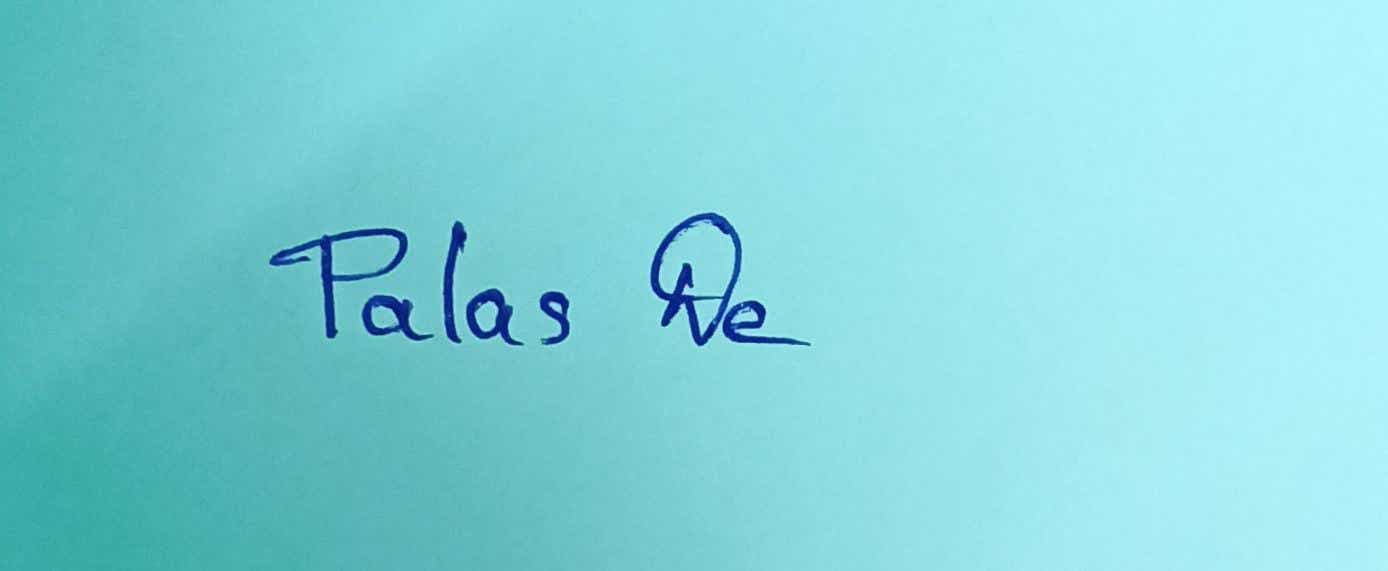 Palas De